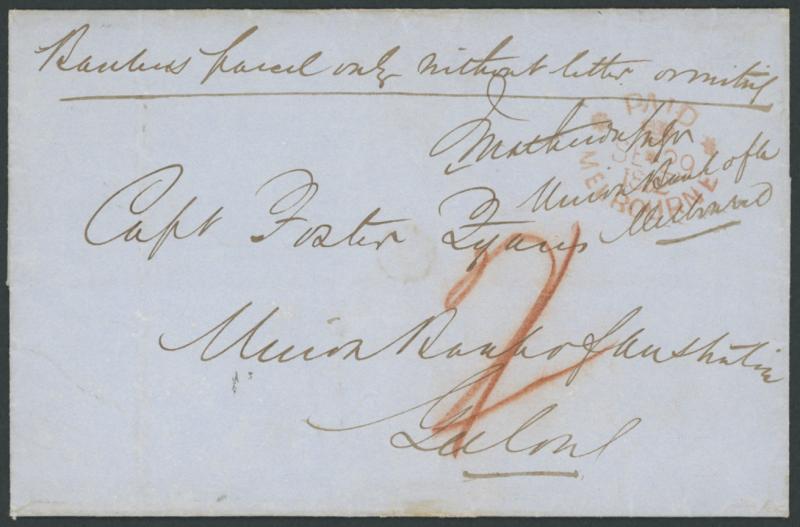 Bankers parcel only without letter or writing
Matheson
Union Bank of A
Melbourne
PAID
SE 09
MELBOURNE
Capt Foster Fyans
2
Union Bank of Australia
Geelong